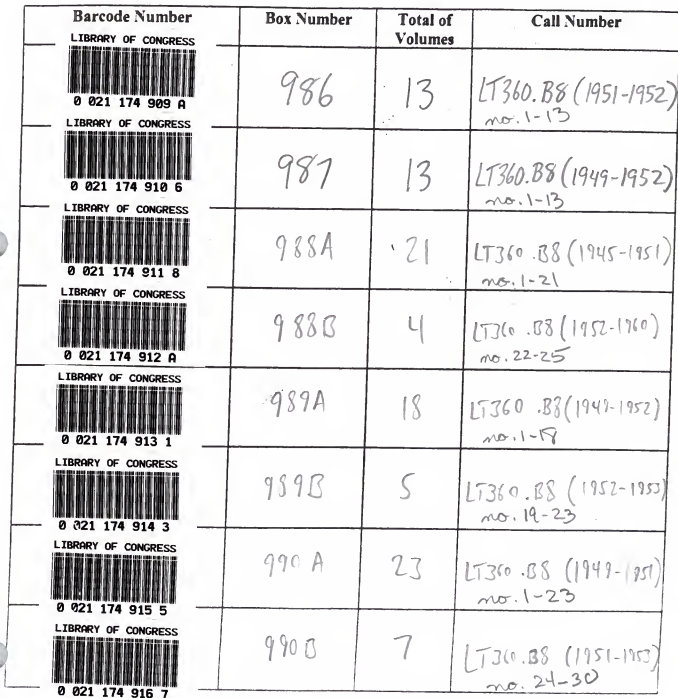 Barcode Number Box Number Total of Volumes Call Number
LIBRARY OF CONGRESS
0 021 174 909 A
986 13 LT360.B8 (1951-1952)
no. 1-13
LIBRARY OF CONGRESS
0 021 174 910 6
987 13 LT360.B8 (1949-1952)
no. 1-13
LIBRARY OF CONGRESS
0 021 174 911 8
988A 21 LT360 .B8 (1945-1951)
no. 1-21
LIBRARY OF CONGRESS
0 021 174 912 A
988B 4 LT360 .B8 (1952-1960)
no. 22-25
LIBRARY OF CONGRESS
0 021 174 913 1
989A 18 LT360 .B8 (1949-1952)
no. 1-18
LIBRARY OF CONGRESS
0 021 174 914 3
989B 5 LT360 .B8 (1952-1953)
no. 19-23
LIBRARY OF CONGRESS
0 021 174 915 5
990 A 23 LT360 .B8 (1949-1951)
no. 1-23
LIBRARY OF CONGRESS
0 021 174 916 7
990 B 7 LT360.B8 (1951-1953)
no. 24-30